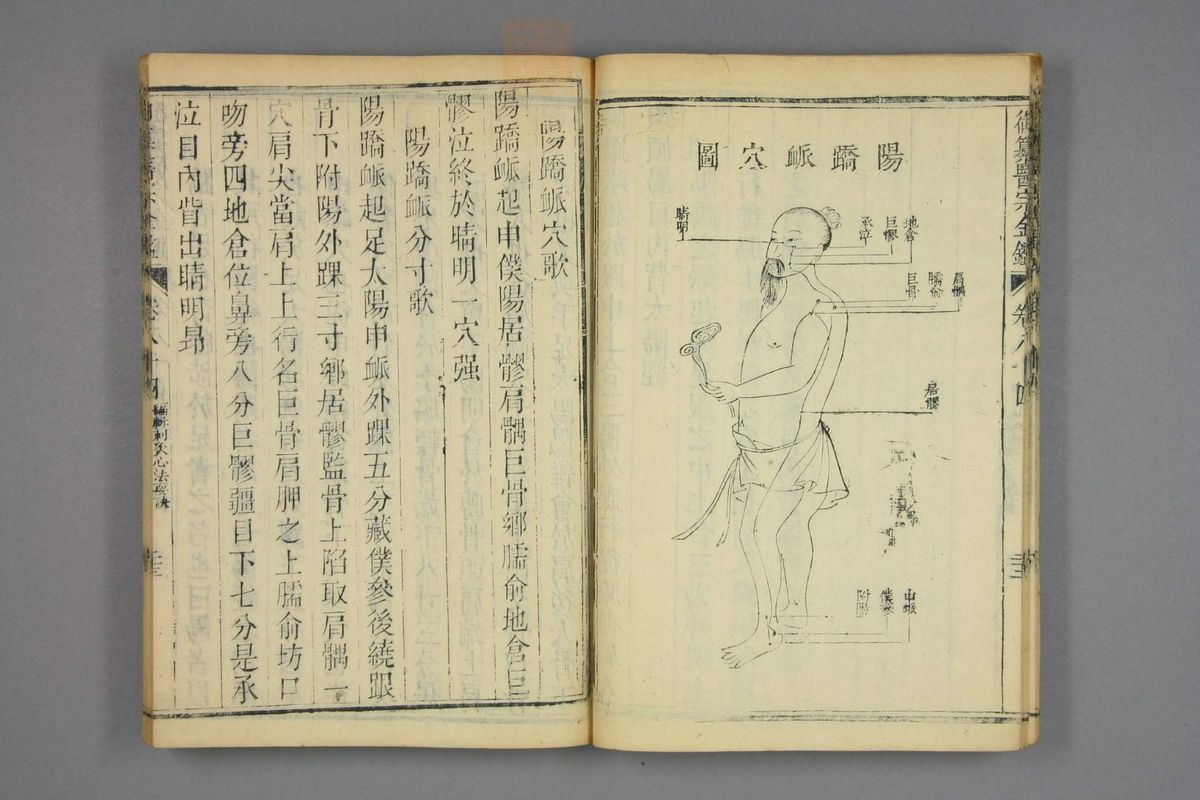 御纂醫宗金鑑 卷八十四
陽蹻衇穴圖
地倉
巨髎
承泣
睛明
肩髃
臑俞
巨骨
居髎
申衇
僕參
附陽
陽蹻衇穴歌
陽蹻衇起申僕陽居髎肩髃巨骨鄉臑俞地倉巨
髎泣終於睛明一穴强
陽蹻衇分寸歌
陽蹻衇起足太陽申衇外踝五分藏僕參後繞跟
骨下附陽外踝三寸鄉居髎監骨上陷取肩髃一
穴肩尖當肩上上行名巨骨肩胛之上臑俞坊口
吻旁四地倉位鼻旁八分巨髎疆目下七分是承
泣目內眥出睛明昂
卷八十四 編輯刺灸心法要訣